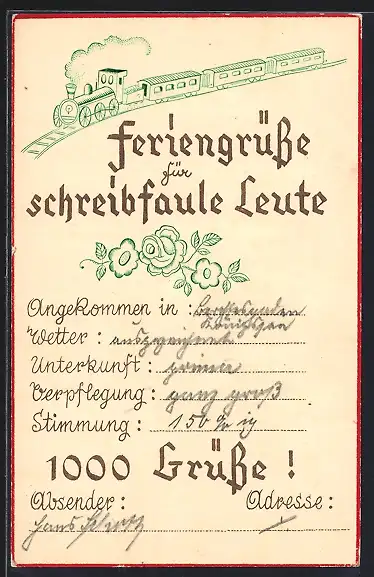 Feriengrüße
für
schreibfaule Leute
Angekommen in : Berchtesgaden
Königssee
Wetter : ausgezeichnet
Unterkunft : prima
Verpflegung : ganz groß
Stimmung : 150 % ig
1000 Grüße !
Absender : Adresse :
Hans